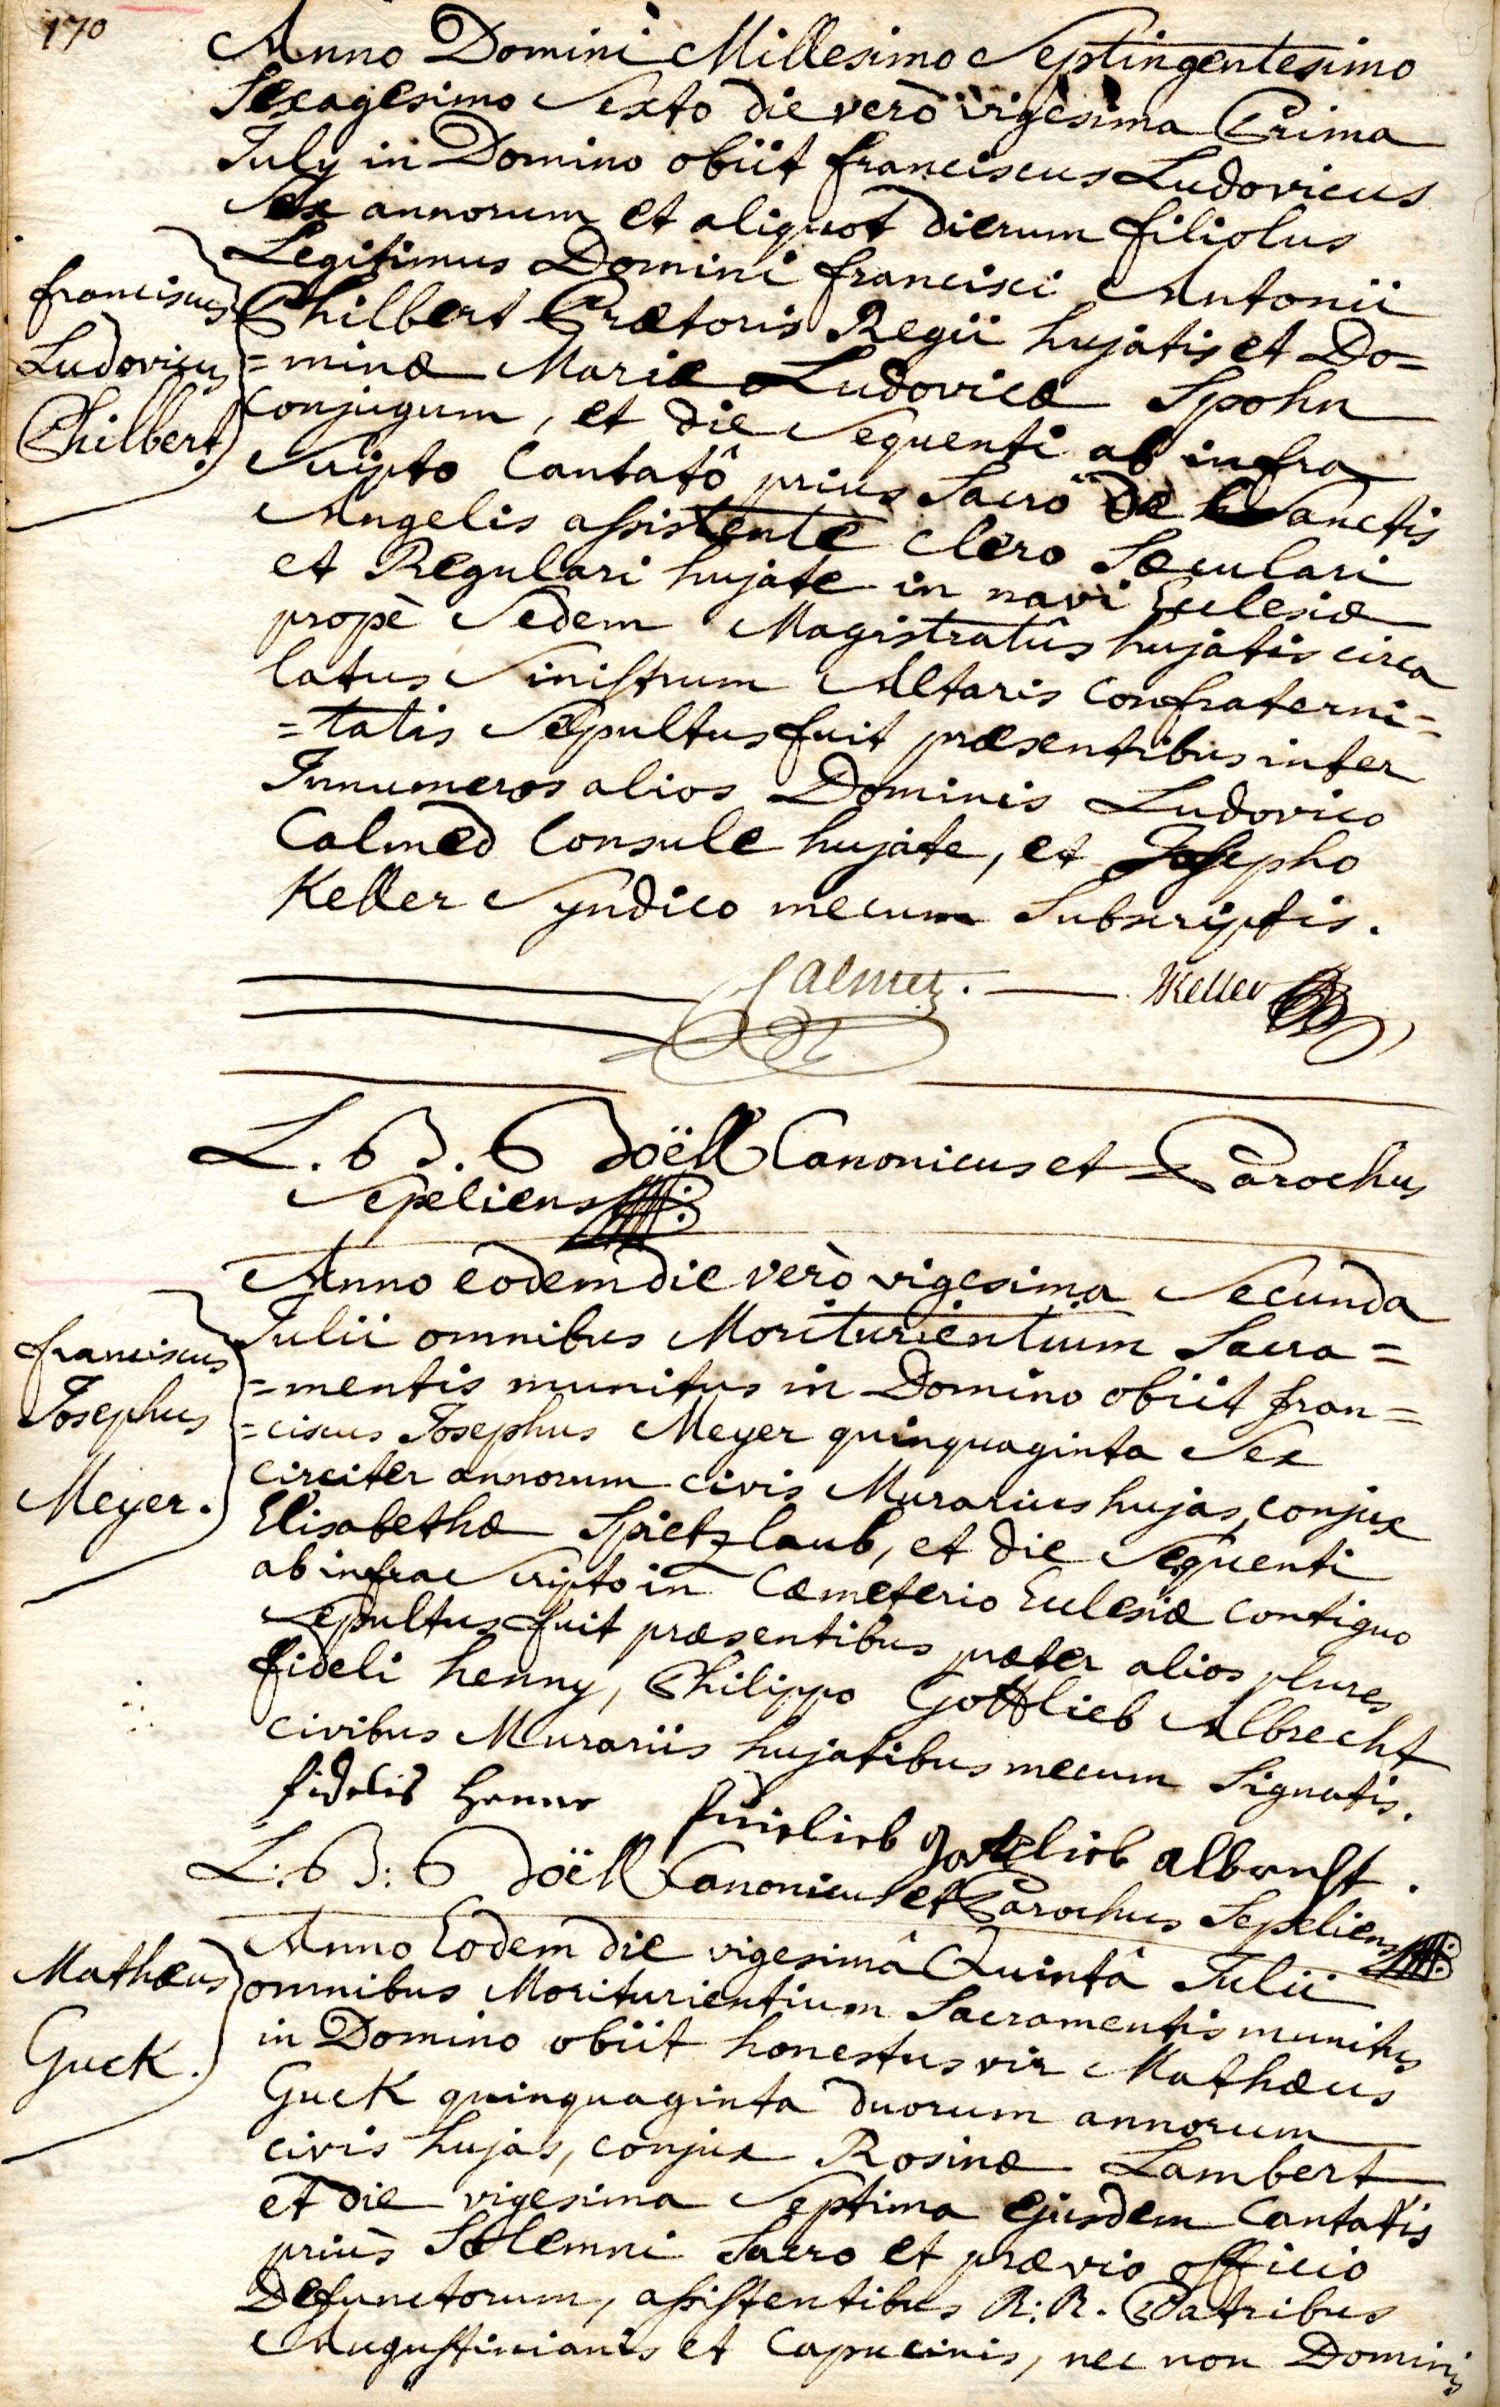 170
Anno Domini Millesimo Septingentesimo
Sexagesimo Sexto die verò vigesima Prima
July in Domino obiit franciscus Ludovicus
Sex annorum et aliquot dierum filiolus
Legitimus Domini francisci Antonii
Philbert Prætoris Regii hujatis et Do=
=minæ Mariæ Ludovicæ Spohn
Conjugum, et die Sequenti ab infra
Scripto Cantatô prius Sacrô de Sanctis
Angelis assistente clero Sæculari
et Regulari hujate in navi Ecclesiæ
propè Sedem Magistratûs hujatis circa
latus Sinistrum Altaris Confraterni=
=tatis Sepultus fuit præsentibus inter
Innumeros alios Dominis Ludovico
Calmed Consule hujate, et Josepho
Keller Syndico mecum Subscriptis.
franciscus
Ludovicus
Philbert.
Calmet. Keller
L. B. G Doëll Canonicus et Parochus
Sepeliens
Anno eodem die verò vigesima Secunda
Julii omnibus Moriturientium Sacra=
=mentis munitus in Domino obiit fran=
=ciscus Josephus Meyer quinquaginta Sex
circiter annorum civis Murarius hujas, conjux
Elisabethæ Spietzlaub, et die Sequenti
ab infra Scripto in Cæmeterio Ecclesiæ contiguo
Sepultus fuit præsentibus præter alios plures
fideli henny, Philippo Gottlieb Albrecht
civibus Murariis hujatibus mecum Signatis.
franciscus
Josephus
Meyer.
fidelis henne
gottlieb albrecht.
L: B: G Doëll Canonicus et Parochus Sepeliens
Anno Eodem die vigesimâ Quintâ Julii
omnibus Moriturientium Sacramentis munitus
in Domino obiit honestus vir Mathæus
Guck quinquaginta duorum annorum
civis hujas, conjux Rosinæ Lambert
et die vigesima Septima ejusdem Cantatis
priùs Solemni Sacro et prævio officio
Defunctorum, assistentibus R: R. Patribus
Augustinianis et Capucinis, nec non Dominis
Mathæus
Guck.